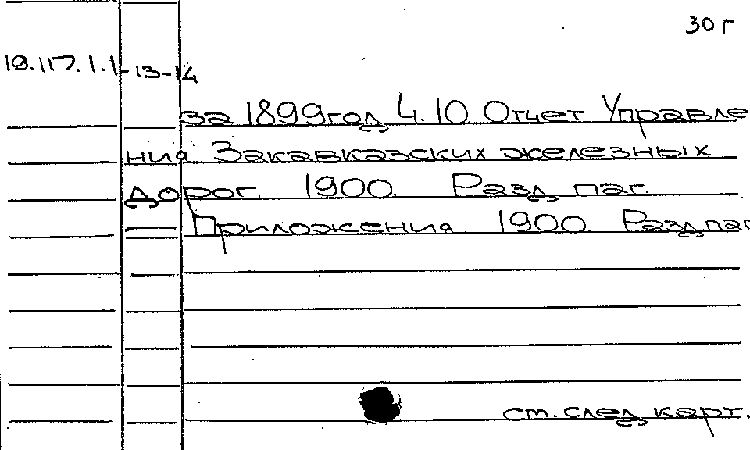 30 г
18.117.1.1-13-14
за 1899 год Ч.10 Отчет Управле
ния Закавказских железных
дорог 1900. Разд. паг.
— Приложения 1900. Разд. паг
см. след. карт.